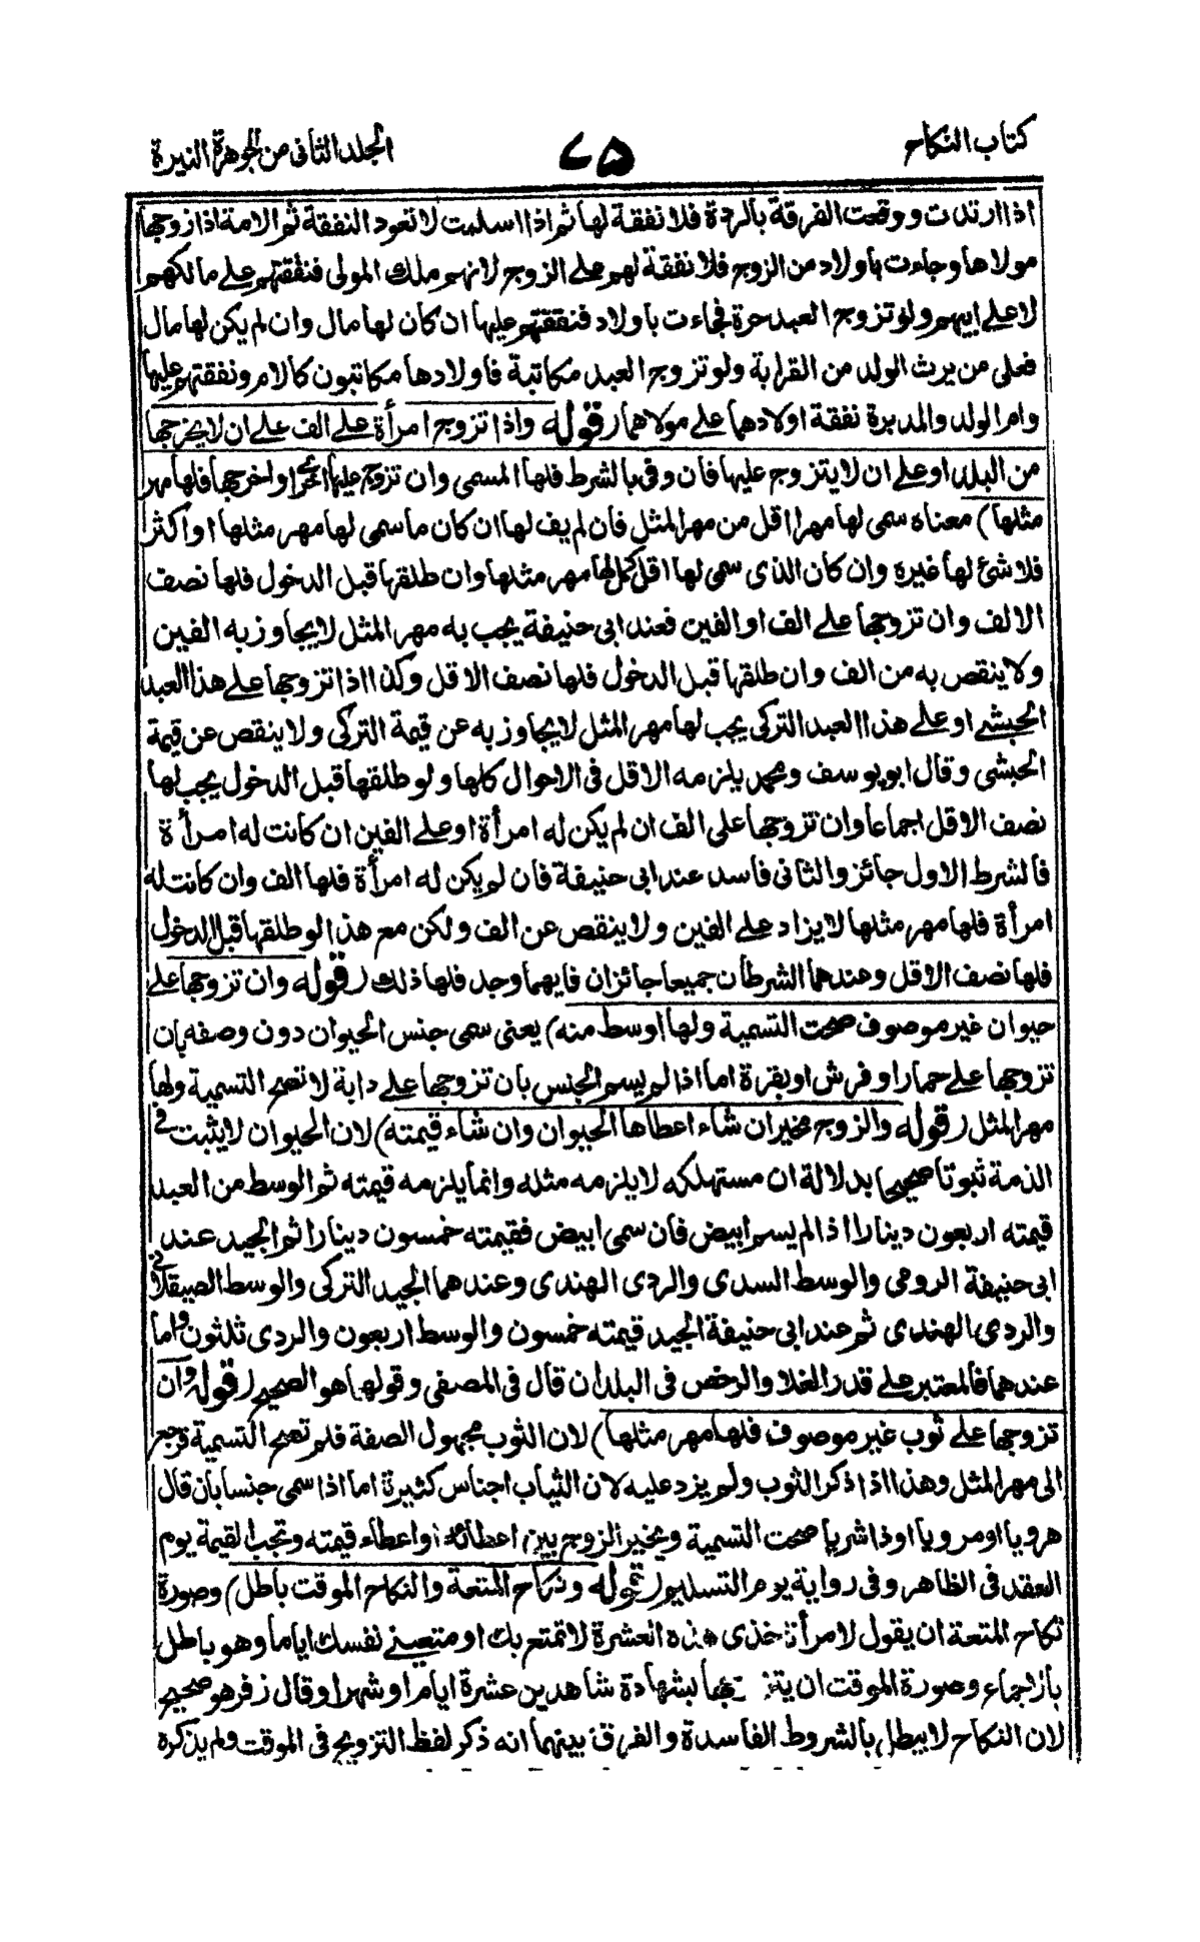 كتاب النكاح ٧٥ الجلد الثانى من الجوهرة النيرة
اذا ارتدت ووقعت الفرقة بالردة فلا نفقة لها ثم اذا اسلمت لا تعود النفقة ثم الامة اذا زوجها
مولاها وجاءت باولاد من الزوج فلا نفقة لهم على الزوج لانهم ملك المولى فنفقتهم على مالكهم
لا على ابيهم ولو تزوج العبد حرة فجاءت باولاد فنفقتهم عليها ان كان لها مال وان لم يكن لها مال
فعلى من يرث الولد من القرابة ولو تزوج العبد مكاتبة فاولادها مكاتبون كالام ونفقتهم عليها
وام الولد والمدبرة نفقة اولادهما على مولاهما (قوله واذا تزوج امرأة على الف على ان لا يخرجها
من البلد او على ان لا يتزوج عليها فان وفى بالشرط فلها المسمى وان تزوج عليها اخرى او اخرجها فلها مهر
مثلها) معناه سمى لها مهرا اقل من مهر المثل فان لم يف لها ان كان ما سمى لها مهر مثلها او اكثر
فلا شئ لها غيره وان كان الذى سمى لها اقل كمل لها مهر مثلها وان طلقها قبل الدخول فلها نصف
الالف وان تزوجها على الف او الفين فعند ابى حنيفة يجب به مهر المثل لا يجاوز به الفين
ولا ينقص به من الف وان طلقها قبل الدخول فلها نصف الاقل وكذا اذا تزوجها على هذا العبد
الحبشى او على هذا العبد التركى يجب لها مهر المثل لا يجاوز به عن قيمة التركى ولا ينقص عن قيمة
الحبشى وقال ابو يوسف ومحمد يلزمه الاقل فى الاحوال كلها ولو طلقها قبل الدخول يجب لها
نصف الاقل اجماعا وان تزوجها على الف ان لم يكن له امرأة او على الفين ان كانت له امرأة
فالشرط الاول جائز والثانى فاسد عند ابى حنيفة فان لم يكن له امرأة فلها الف وان كانت له
امرأة فلها مهر مثلها لا يزاد على الفين ولا ينقص عن الف ولكن مع هذا لو طلقها قبل الدخول
فلها نصف الاقل وعندهما الشرطان جميعا جائزان فايهما وجد فلها ذلك (قوله وان تزوجها على
حيوان غير موصوف صحت التسمية ولها اوسط منه) يعنى سمى جنس الحيوان دون وصفه بان
تزوجها على حمار او فرش او بقرة اما اذا لم يسم الجنس بان تزوجها على دابة لا تصح التسمية ولها
مهر المثل (قوله والزوج مخير ان شاء اعطاها الحيوان وان شاء قيمته) لان الحيوان لا يثبت فى
الذمة ثبوتا صحيحا بدلالة ان مستهلكه لا يلزمه مثله وانما يلزمه قيمته ثم الوسط من العبد
قيمته اربعون دينارا اذا لم يسم ابيض فان سمى ابيض فقيمته خمسون دينارا ثم الجيد عند
ابى حنيفة الرومى والوسط السدى والردى الهندى وعندهما الجيد التركى والوسط الصيقلانى
والردى الهندى ثم عند ابى حنيفة الجيد قيمته خمسون والوسط اربعون والردى ثلثون واما
عندهما فالمعتبر على قدر الغلا والرخص فى البلدان قال فى المصفى وقولهما هو الصحيح (قوله وان
تزوجها على ثوب غير موصوف فلها مهر مثلها) لان الثوب مجهول الصفة فلم تصح التسمية فرجع
الى مهر المثل وهذا اذا ذكر الثوب ولم يزد عليه لان الثياب اجناس كثيرة اما اذا سمى جنسا بان قال
هرويا او مرويا او ذا شريا صحت التسمية ويخير الزوج بين اعطائه او اعطاء قيمته وتجب القيمة يوم
العقد فى الظاهر وفى رواية يوم التسليم (قوله ونكاح المتعة والنكاح الموقت باطل) وصورة
نكاح المتعة ان يقول لامرأة خذى هذه العشرة لا تمتع بك او متعينى نفسك اياما وهو باطل
بالاجماع وصورة الموقت ان يتزوجها بشهادة شاهدين عشرة ايام او شهرا وقال زفر هو صحيح
لان النكاح لا يبطل بالشروط الفاسدة والفرق بينهما انه ذكر لفظ التزويج فى الموقت ولم يذكره